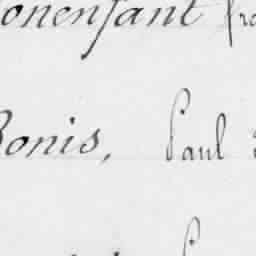 Bonenfant
Bonis, Paul